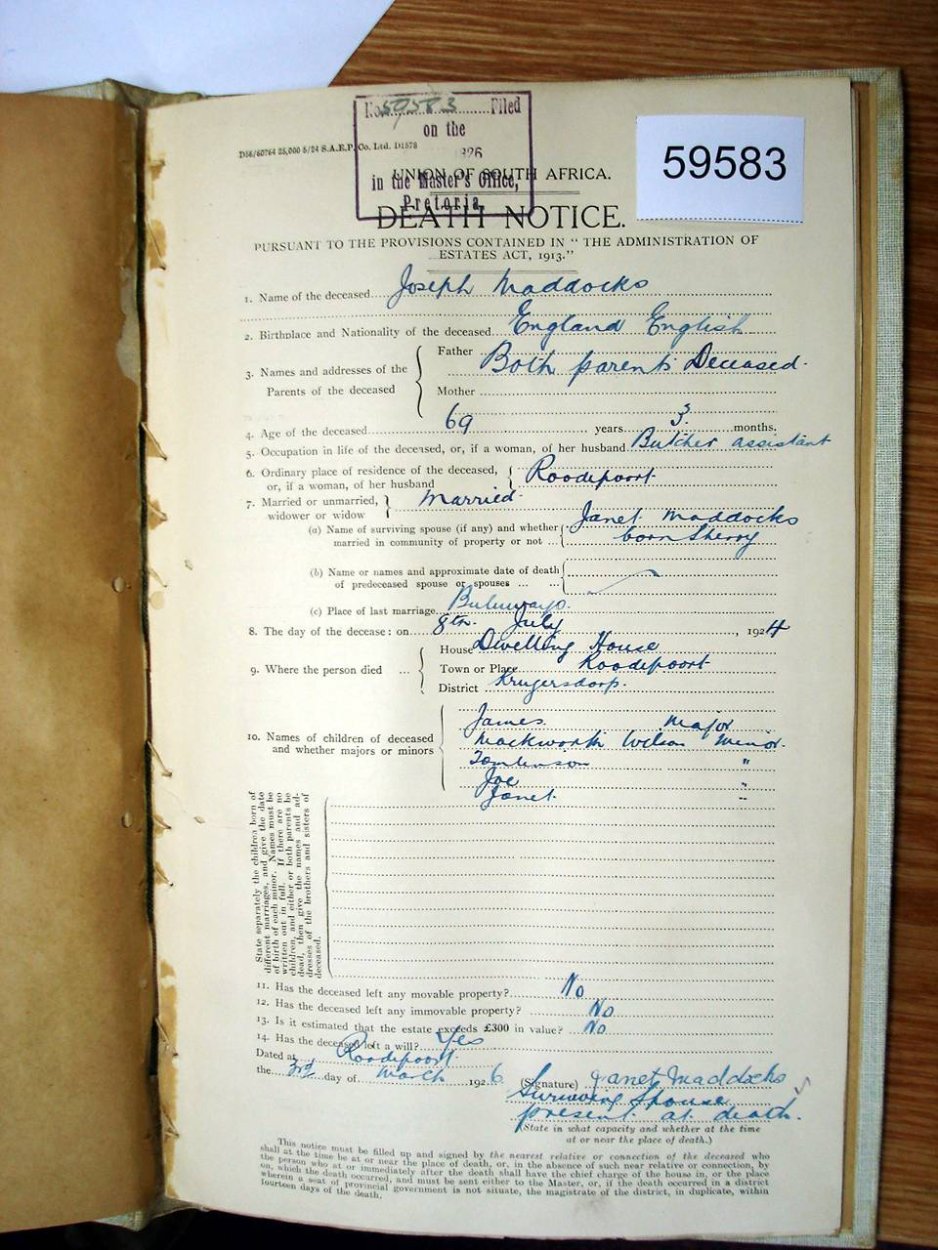 No. 59583 Filed
on the
1926
in the Master's Office,
Pretoria
59583
D56/60764 25,000 5/24 S.A.R.P. Co. Ltd. D1578
UNION OF SOUTH AFRICA.
DEATH NOTICE.
PURSUANT TO THE PROVISIONS CONTAINED IN " THE ADMINISTRATION OF
ESTATES ACT, 1913."
1. Name of the deceased Joseph Maddocks
2. Birthplace and Nationality of the deceased England English
3. Names and addresses of the Parents of the deceased
Father Both parents Deceased.
Mother
4. Age of the deceased 69 years 3 months.
5. Occupation in life of the deceased, or, if a woman, of her husband Butcher assistant
6. Ordinary place of residence of the deceased,
or, if a woman, of her husband Roodepoort
7. Married or unmarried,
widower or widow Married.
(a) Name of surviving spouse (if any) and whether Janet Maddocks
married in community of property or not born Sherry
(b) Name or names and approximate date of death
of predeceased spouse or spouses ... ...
(c) Place of last marriage Bulawayo.
8. The day of the decease : on 8th July, 1924
9. Where the person died ...
House Dwelling House
Town or Place Roodepoort
District Krugersdorp.
10. Names of children of deceased
and whether majors or minors
James. Major
Mackworth Wilson Minor.
Tomlinson "
Joe "
Janet "
State separately the children born of
different marriages, and give the date
of birth of each minor. Names must be
written out in full. If there are no
children, and either or both parents be
dead, then give the names and ad-
dresses of the brothers and sisters of
deceased.
11. Has the deceased left any movable property? No
12. Has the deceased left any immovable property? No
13. Is it estimated that the estate exceeds £300 in value? No
14. Has the deceased left a will? Yes
Dated at Roodepoort
the 3rd day of March 1926 (Signature) Janet Maddocks
Surviving Spouse
present at death.
(State in what capacity and whether at the time
at or near the place of death.)
This notice must be filled up and signed by the nearest relative or connection of the deceased who
shall at the time be at or near the place of death, or, in the absence of such near relative or connection, by
the person who at or immediately after the death shall have the chief charge of the house in, or the place
on, which the death occurred, and must be sent either to the Master, or, if the death occurred in a district
wherein a seat of provincial government is not situate, the magistrate of the district, in duplicate, within
fourteen days of the death.